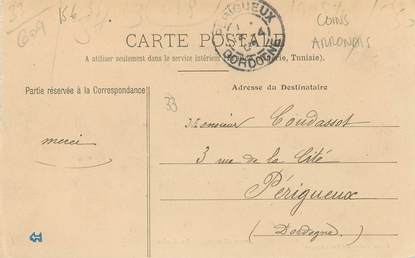 609
156
PÉRIGUEUX
DORDOGNE
COINS
ARRONDIS
CARTE POSTALE
A utiliser seulement dans le service intérieur Algérie, Tunisie).
Partie réservée à la Correspondance
Adresse du Destinataire
33
merci
Monsieur Coudassot
3 rue de la Cité
Périgueux
(Dordogne)